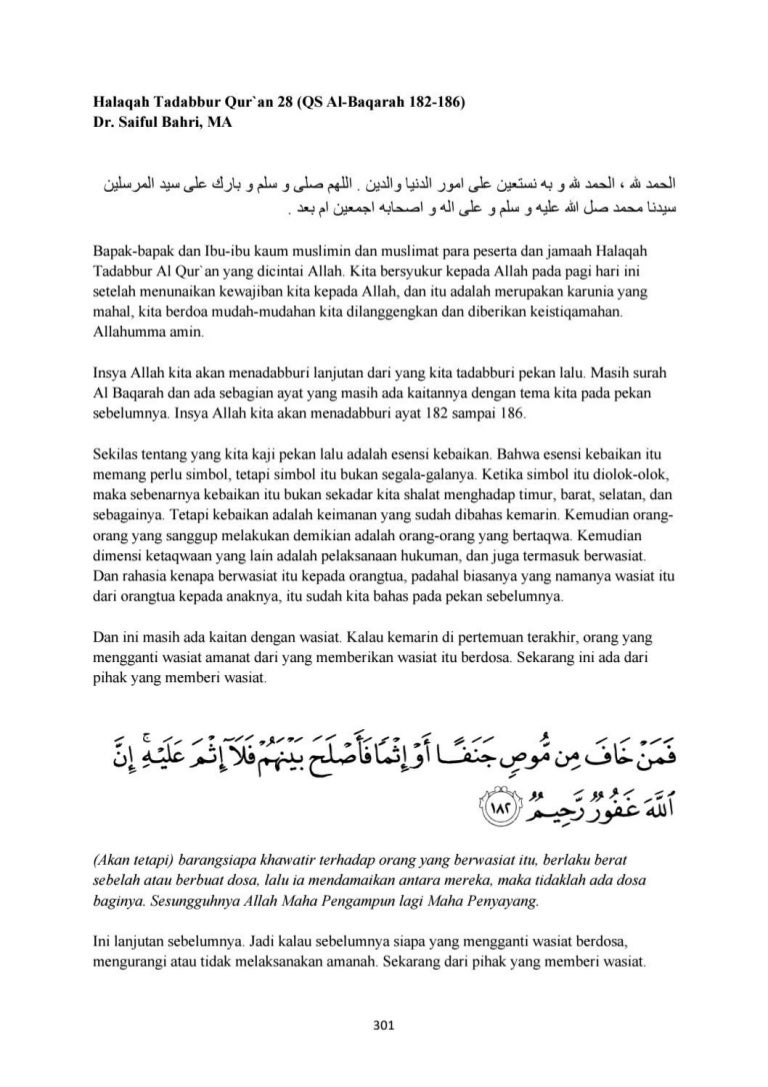 Halaqah Tadabbur Qur`an 28 (QS Al-Baqarah 182-186)
Dr. Saiful Bahri, MA
الحمد لله ، الحمد لله و به نستعين على امور الدنيا والدين . اللهم صلى و سلم و بارك على سيد المرسلين
سيدنا محمد صل الله عليه و سلم و على اله و اصحابه اجمعين ام بعد .
Bapak-bapak dan Ibu-ibu kaum muslimin dan muslimat para peserta dan jamaah Halaqah
Tadabbur Al Qur`an yang dicintai Allah. Kita bersyukur kepada Allah pada pagi hari ini
setelah menunaikan kewajiban kita kepada Allah, dan itu adalah merupakan karunia yang
mahal, kita berdoa mudah-mudahan kita dilanggengkan dan diberikan keistiqamahan.
Allahumma amin.
Insya Allah kita akan menadabburi lanjutan dari yang kita tadabburi pekan lalu. Masih surah
Al Baqarah dan ada sebagian ayat yang masih ada kaitannya dengan tema kita pada pekan
sebelumnya. Insya Allah kita akan menadabburi ayat 182 sampai 186.
Sekilas tentang yang kita kaji pekan lalu adalah esensi kebaikan. Bahwa esensi kebaikan itu
memang perlu simbol, tetapi simbol itu bukan segala-galanya. Ketika simbol itu diolok-olok,
maka sebenarnya kebaikan itu bukan sekadar kita shalat menghadap timur, barat, selatan, dan
sebagainya. Tetapi kebaikan adalah keimanan yang sudah dibahas kemarin. Kemudian orang-
orang yang sanggup melakukan demikian adalah orang-orang yang bertaqwa. Kemudian
dimensi ketaqwaan yang lain adalah pelaksanaan hukuman, dan juga termasuk berwasiat.
Dan rahasia kenapa berwasiat itu kepada orangtua, padahal biasanya yang namanya wasiat itu
dari orangtua kepada anaknya, itu sudah kita bahas pada pekan sebelumnya.
Dan ini masih ada kaitan dengan wasiat. Kalau kemarin di pertemuan terakhir, orang yang
mengganti wasiat amanat dari yang memberikan wasiat itu berdosa. Sekarang ini ada dari
pihak yang memberi wasiat.
فَمَنْ خَافَ مِن مُّوصٍ جَنَفًا أَوْ إِثْمًا فَأَصْلَحَ بَيْنَهُمْ فَلَآ إِثْمَ عَلَيْهِ ۚ إِنَّ
ٱللَّهَ غَفُورٌ رَّحِيمٌ ١٨٢
(Akan tetapi) barangsiapa khawatir terhadap orang yang berwasiat itu, berlaku berat
sebelah atau berbuat dosa, lalu ia mendamaikan antara mereka, maka tidaklah ada dosa
baginya. Sesungguhnya Allah Maha Pengampun lagi Maha Penyayang.
Ini lanjutan sebelumnya. Jadi kalau sebelumnya siapa yang mengganti wasiat berdosa,
mengurangi atau tidak melaksanakan amanah. Sekarang dari pihak yang memberi wasiat.
301